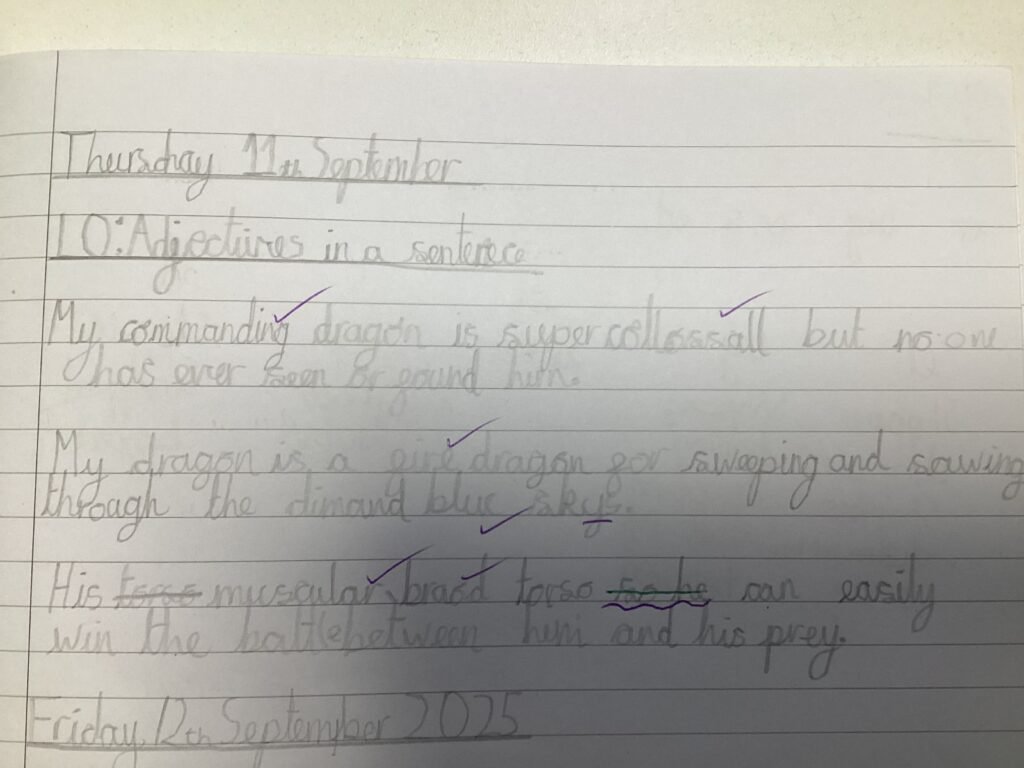 Thursday 11th September
LO: Adjectives in a sentence
My commanding dragon is super collosssall but no one
has ever seen or found him.
My dragon is a dragon for sweeping and sawing
through the dimand blue skys.
His torso muscular, braod torso so he can easily
win the battle between him and his prey.
Friday 12th September 2025